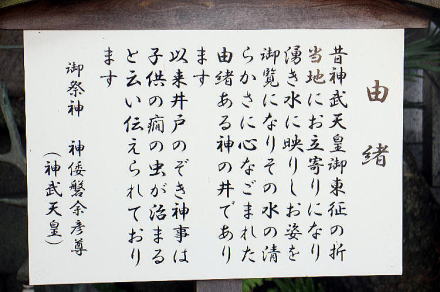 由緒
昔神武天皇御東征の折
当地にお立寄りになり
湧き水に映りしお姿を
御覧になりその水の清
らかさに心なごまれた
由緒ある神の井であり
ます
以来井戸のぞき神事は
子供の癇の虫が治まる
と云い伝えられており
ます
御祭神 神倭磐余彦尊
(神武天皇)